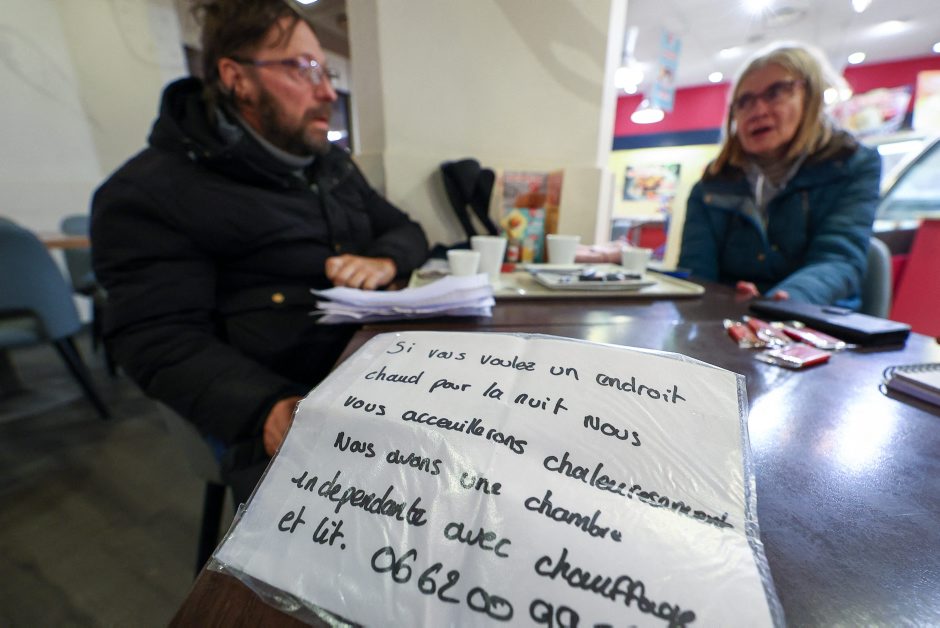 Si vous voulez un endroit
chaud pour la nuit Nous
vous acceuillerons chaleuresement
Nous avons une chambre
independante avec chauffage
et lit. 06 62 00 99